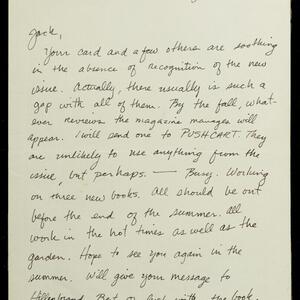 Jack,
Your card and a few others are soothing
in the absence of recognition of the new
issue. Actually, there usually is such a
gap with all of them. By the fall, what-
ever reviews the magazine manages will
appear. I will send one to PUSHCART. They
are unlikely to use anything from the
issue, but perhaps. — Busy. Working
on three new books. All should be out
before the end of the summer. All
work in the hot times as well as the
garden. Hope to see you again in the
summer. Will give your message to
Best of luck with the book,